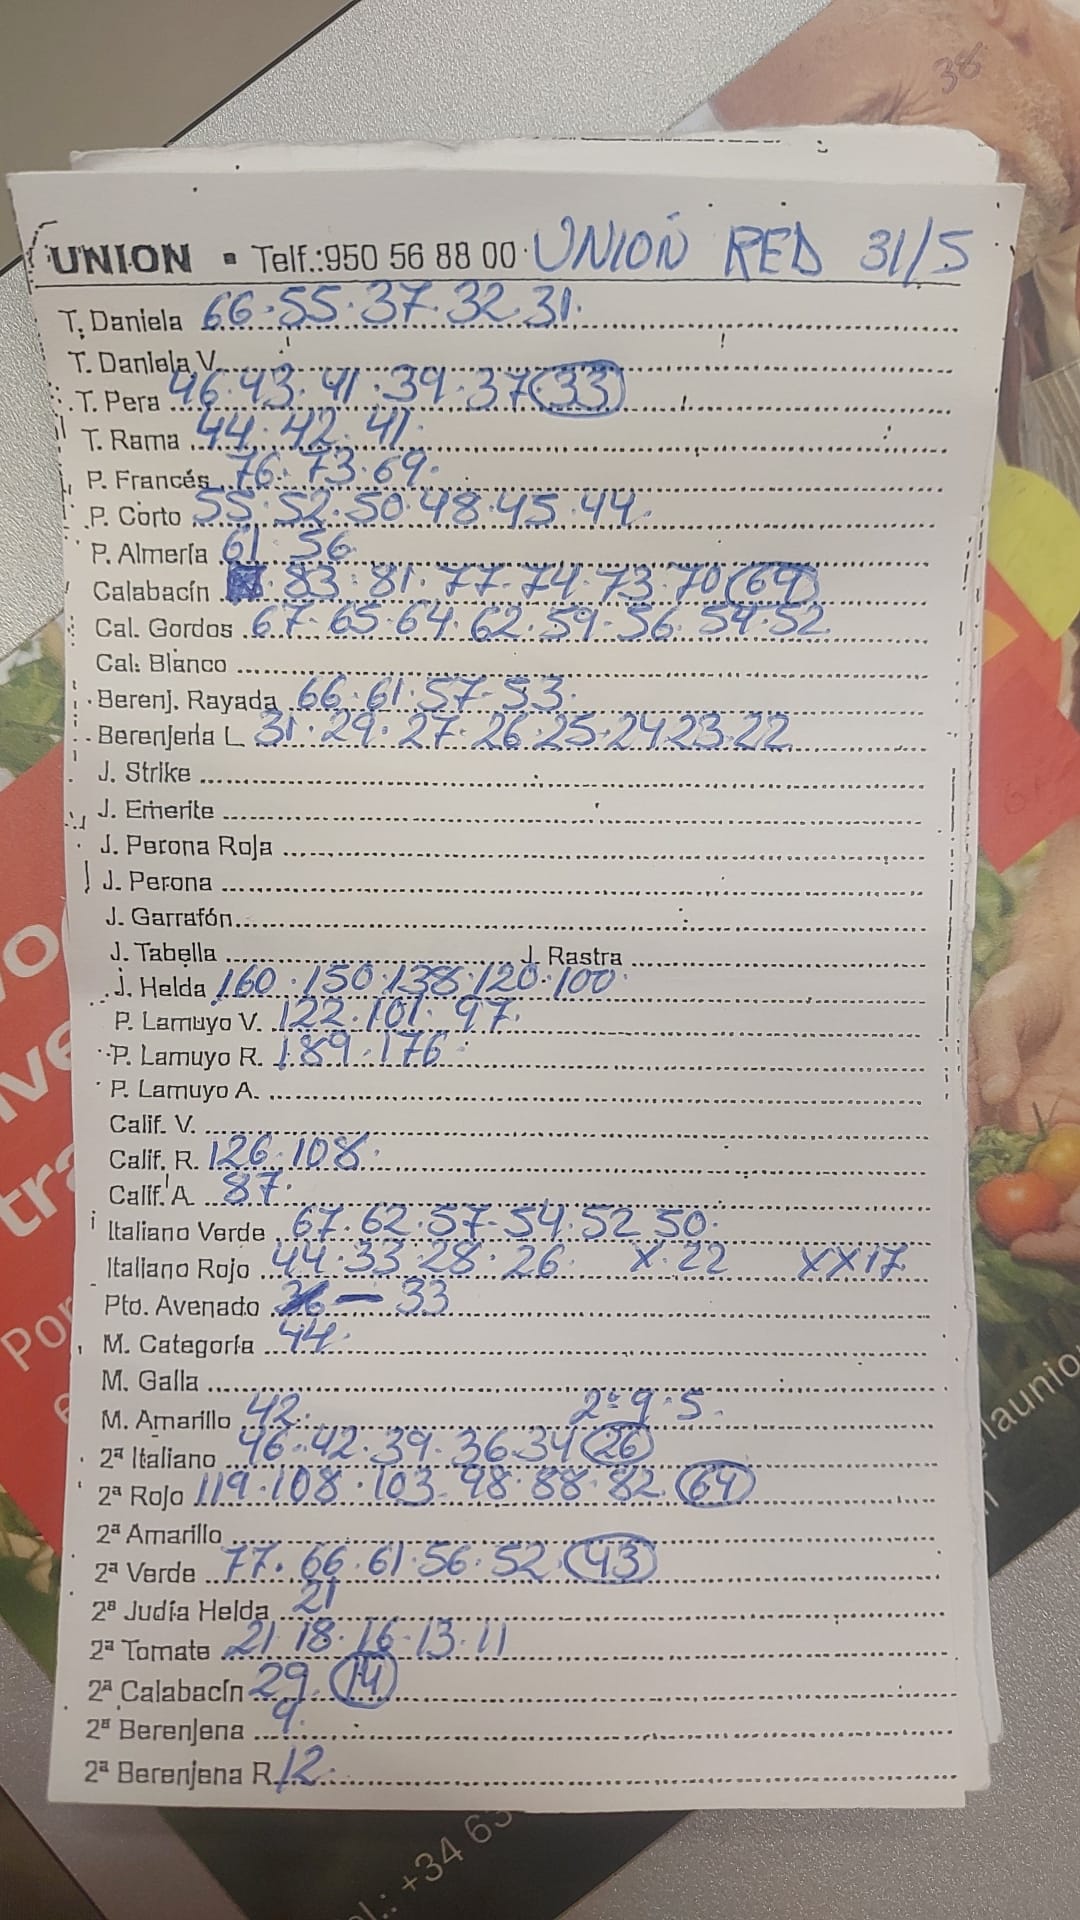 38
UNION · Telf.:950 56 88 00 · UNIÓN RED 31/5
T. Daniela 66·55·37·32·31·
T. Daniela V.
T. Pera 46·43·41·39·37 (33)
T. Rama 44·42·41·
P. Francés 76·73·69·
P. Corto 55·52·50·48·45·44·
P. Almería 61·56·
Calabacín ·83·81·77·74·73·70 (69)
Cal. Gordos 67·65·64·62·59·56·54·52
Cal. Blanco
Berenj. Rayada 66·61·57·53·
Berenjena L 31·29·27·26·25·24·23·22
J. Strike
J. Emerite
J. Perona Roja
J. Perona
J. Garrafón
J. Tabella J. Rastra
J. Helda 160·150·138·120·100·
P. Lamuyo V. 122·101·97·
P. Lamuyo R. 189·176·
P. Lamuyo A.
Calif. V.
Calif. R. 126·108·
Calif. A 87·
Italiano Verde 67·62·57·54·52·50·
Italiano Rojo 44·33·28·26· X·22 XX17
Pto. Avenado — 33
M. Categoría 44·
M. Galla
M. Amarillo 42· 2ª 9·5·
2ª Italiano 46·42·39·36·34 (26)
2ª Rojo 119·108·103·98·88·82 (64)
2ª Amarillo
2ª Verde 77·66·61·56·52 (43)
2ª Judía Helda 21
2ª Tomate 21·18·16·13·11
2ª Calabacín 29· (14)
2ª Berenjena 9·
2ª Berenjena R. 12·
Por
launio
.: +34 63